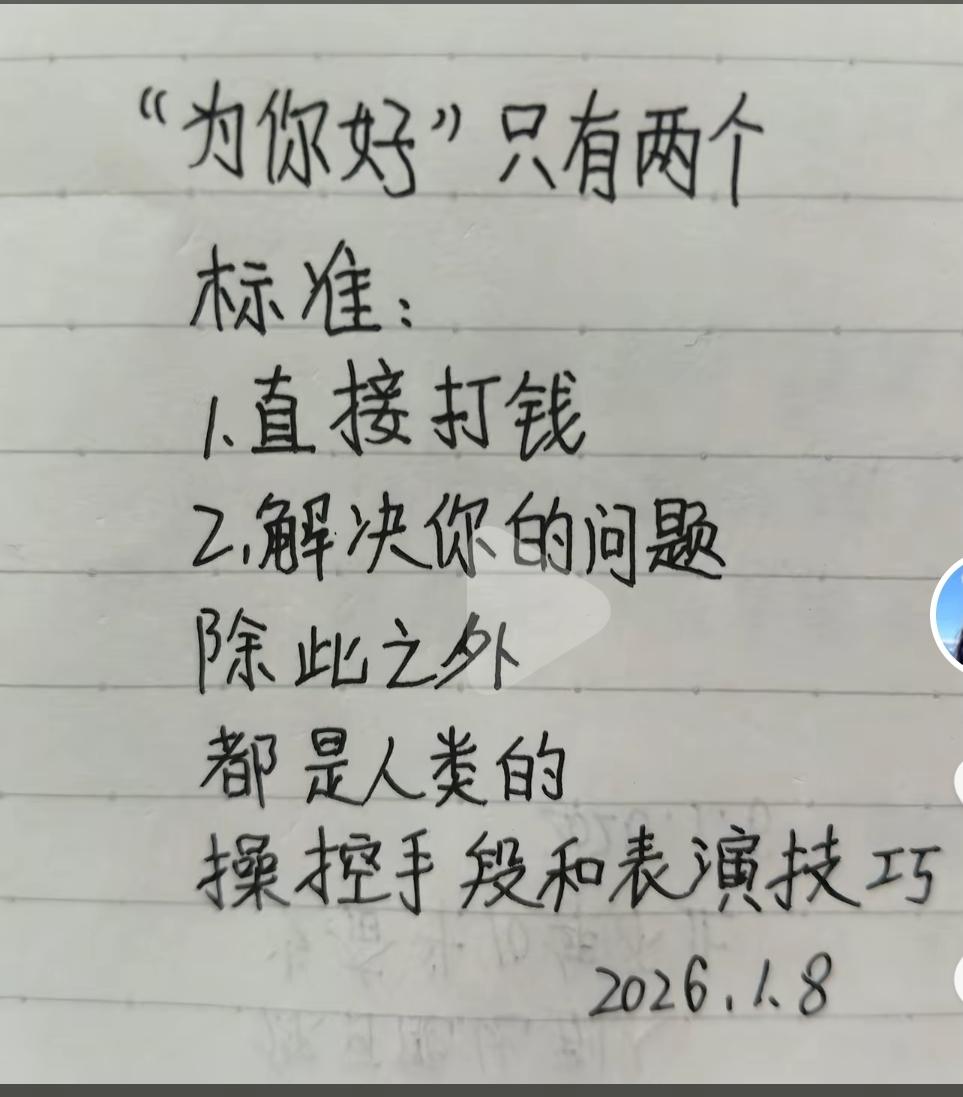 “为你好”只有两个
标准：
1.直接打钱
2.解决你的问题
除此之外
都是人类的
操控手段和表演技巧
2026.1.8